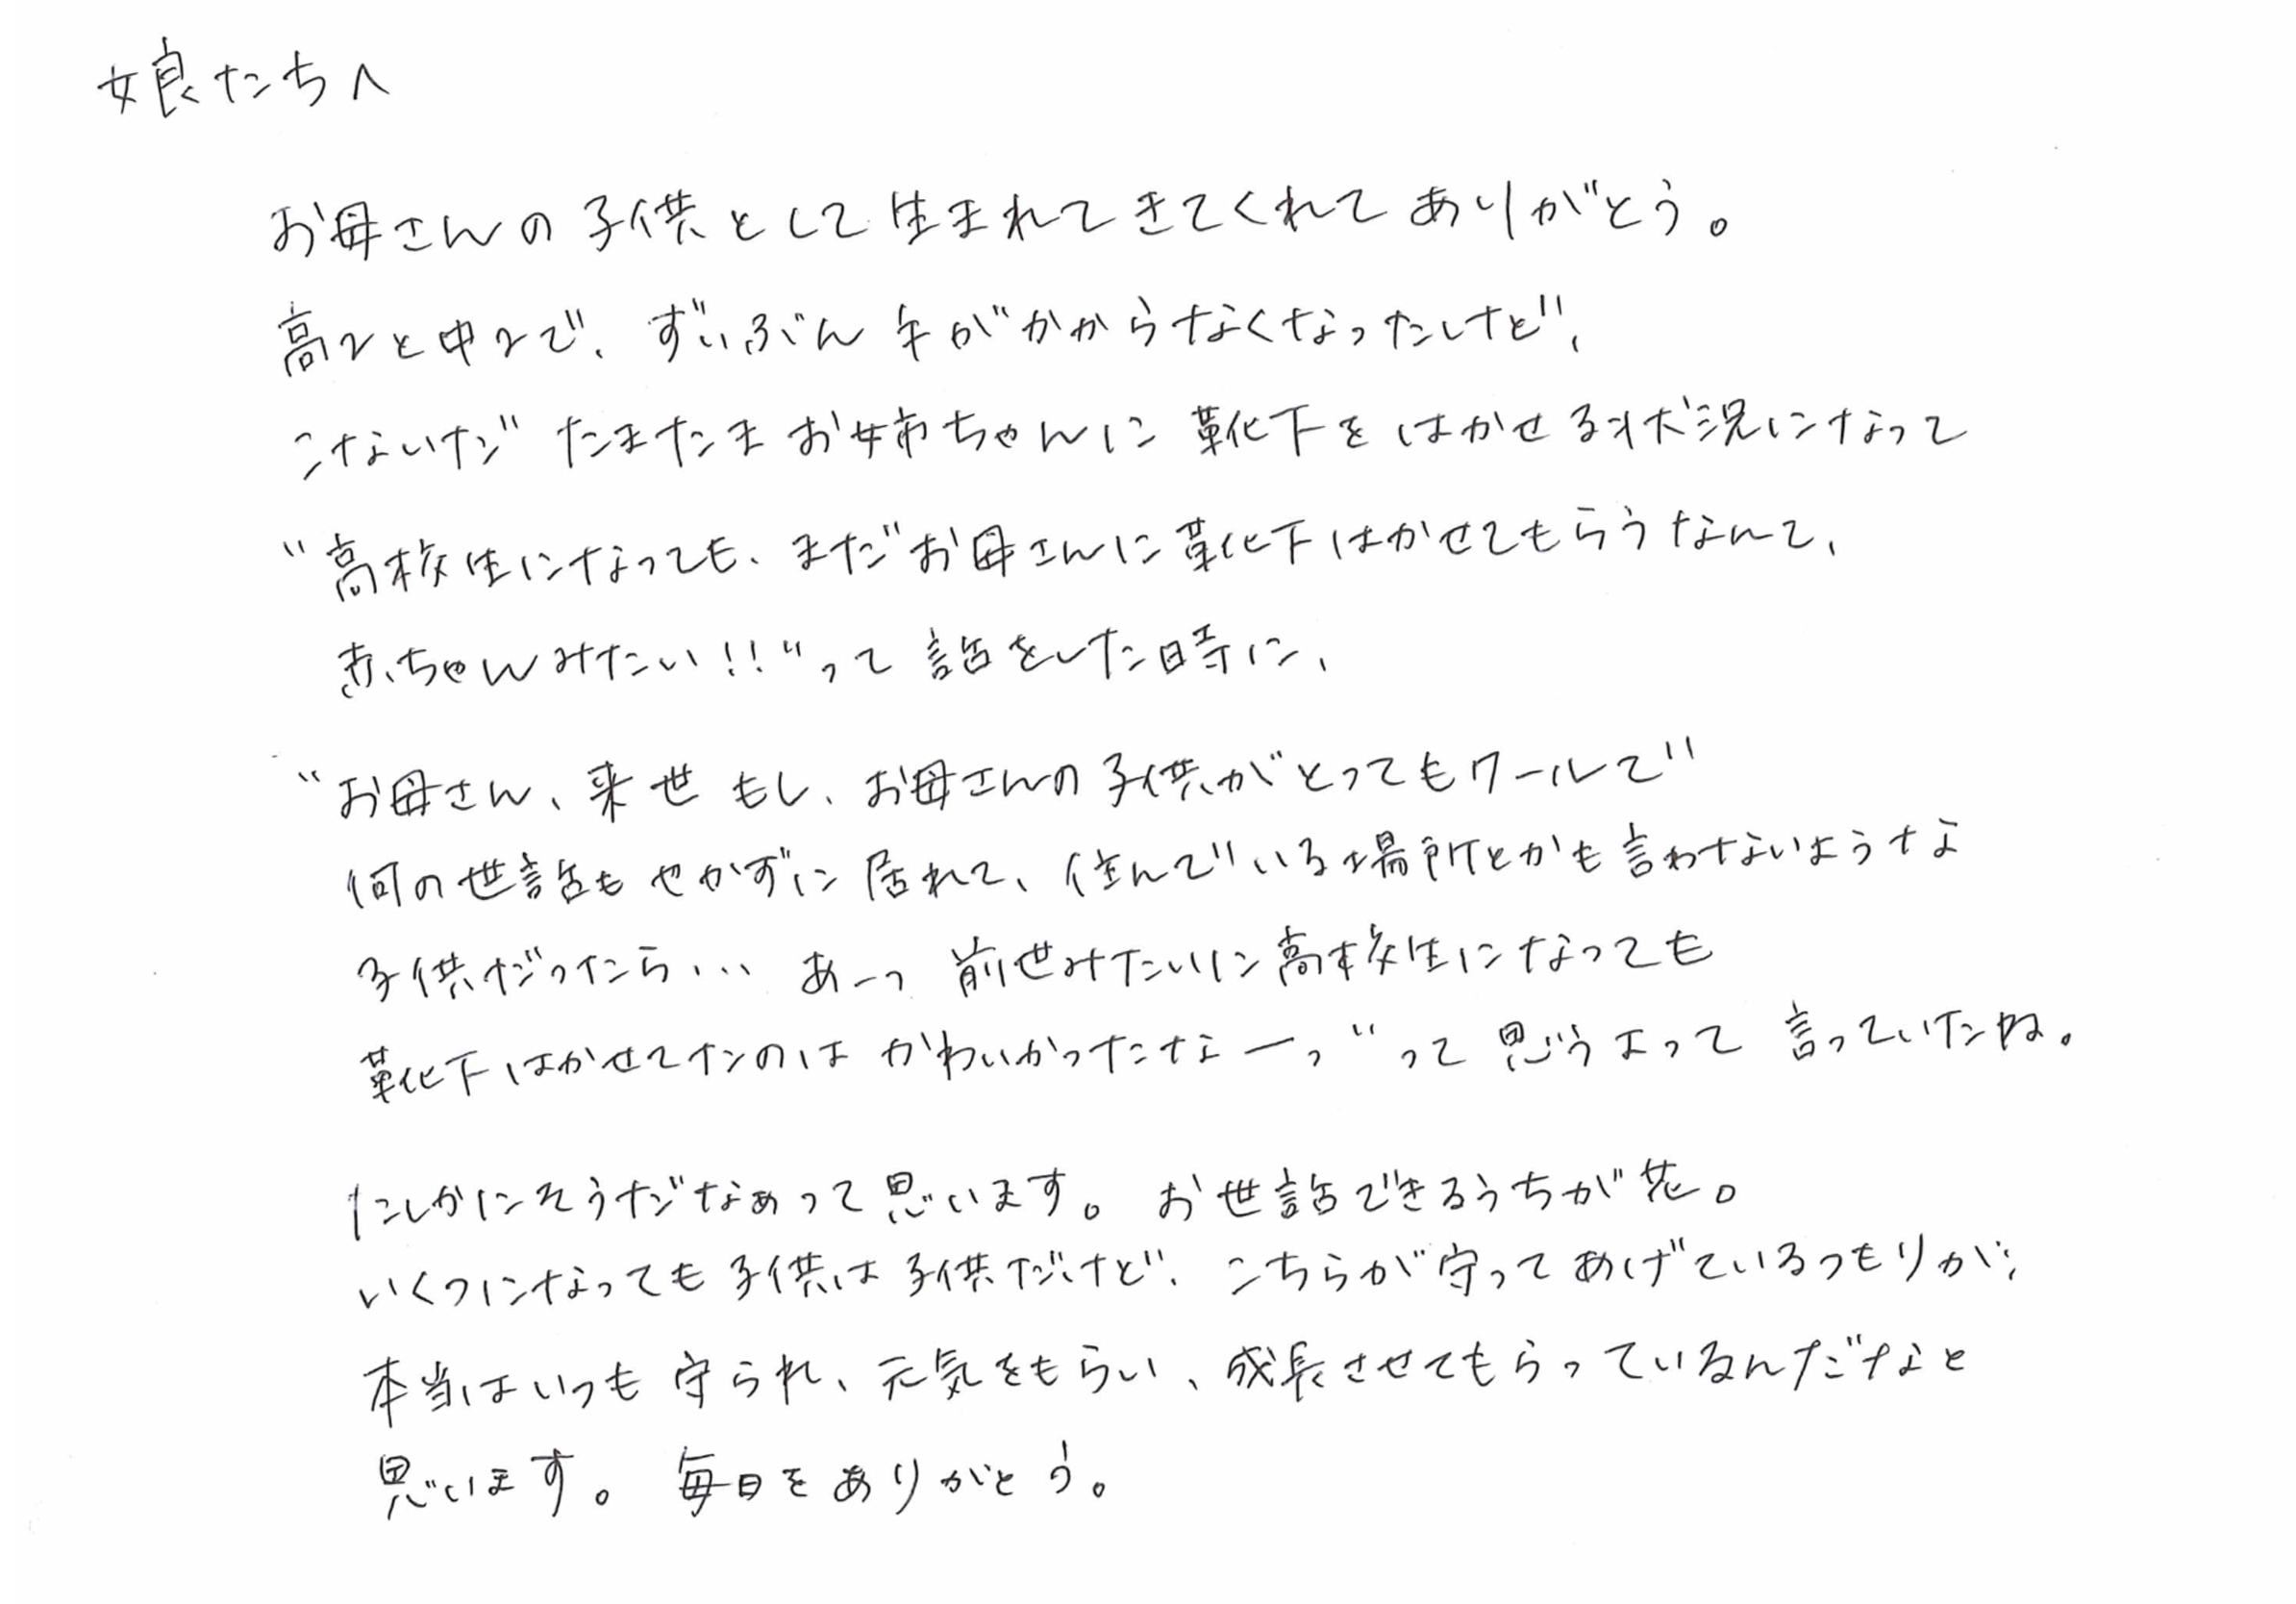 娘たちへ
お母さんの子供として生まれてきてくれてありがとう。
高2と中2で、ずいぶん手がかからなくなったけど、
こないだ たまたま お姉ちゃんに 靴下をはかせる状況になって
“高校生になっても、まだお母さんに靴下はかせてもらうなんて、
赤ちゃんみたい!!”って 話をした時に、
“お母さん、来世 もし、お母さんの子供がとってもクールで
何の世話もやかずに居れて、住んでいる場所とかも言わないような
子供だったら... あーっ 前世みたいに高校生になっても
靴下はかせてたのは かわいかったなーっ”って 思うよって 言っていたね。
たしかにそうだなぁって思います。お世話できるうちが花。
いくつになっても子供は子供だけど、こちらが守ってあげているつもりが、
本当はいつも守られ、元気をもらい、成長させてもらっているんだなと
思います。毎日をありがとう。